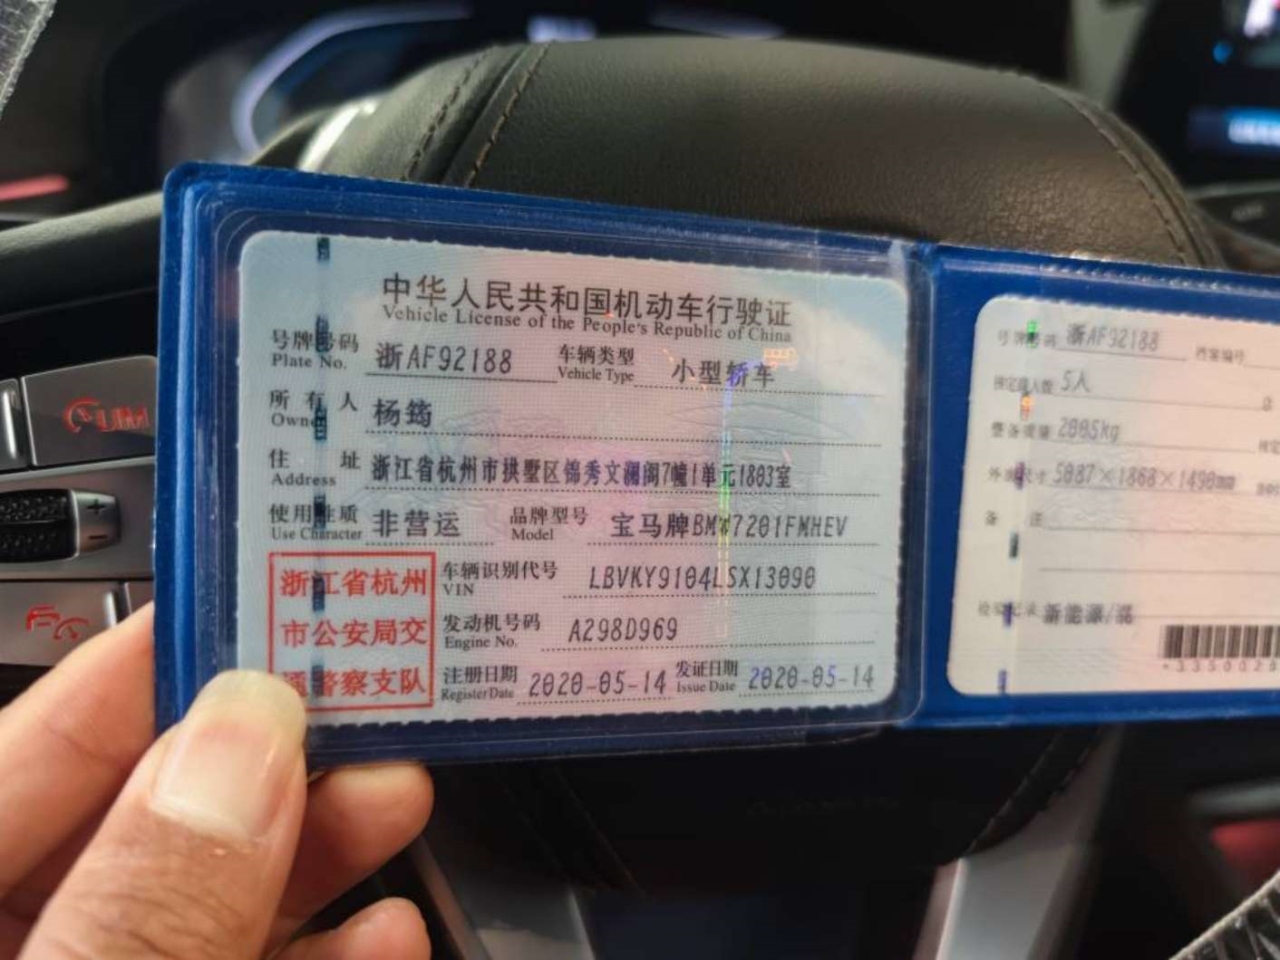 中华人民共和国机动车行驶证
Vehicle License of the People's Republic of China
号牌号码 浙AF92188 车辆类型 小型轿车
Plate No. Vehicle Type
所有人 杨筠
Owner
住址 浙江省杭州市拱墅区锦秀文澜阁7幢1单元1803室
Address
使用性质 非营运 品牌型号 宝马牌BMW7201FMHEV
Use Character Model
浙江省杭州
市公安局交
通警察支队
车辆识别代号 LBVKY9104LSX13090
VIN
发动机号码 A298D969
Engine No.
注册日期 2020-05-14 发证日期 2020-05-14
Register Date Issue Date
号牌号码 浙AF92188 档案编号
核定载人数 5人
整备质量 2005kg
外廓尺寸 5087×1868×1490mm
备注
检验记录 新能源/混